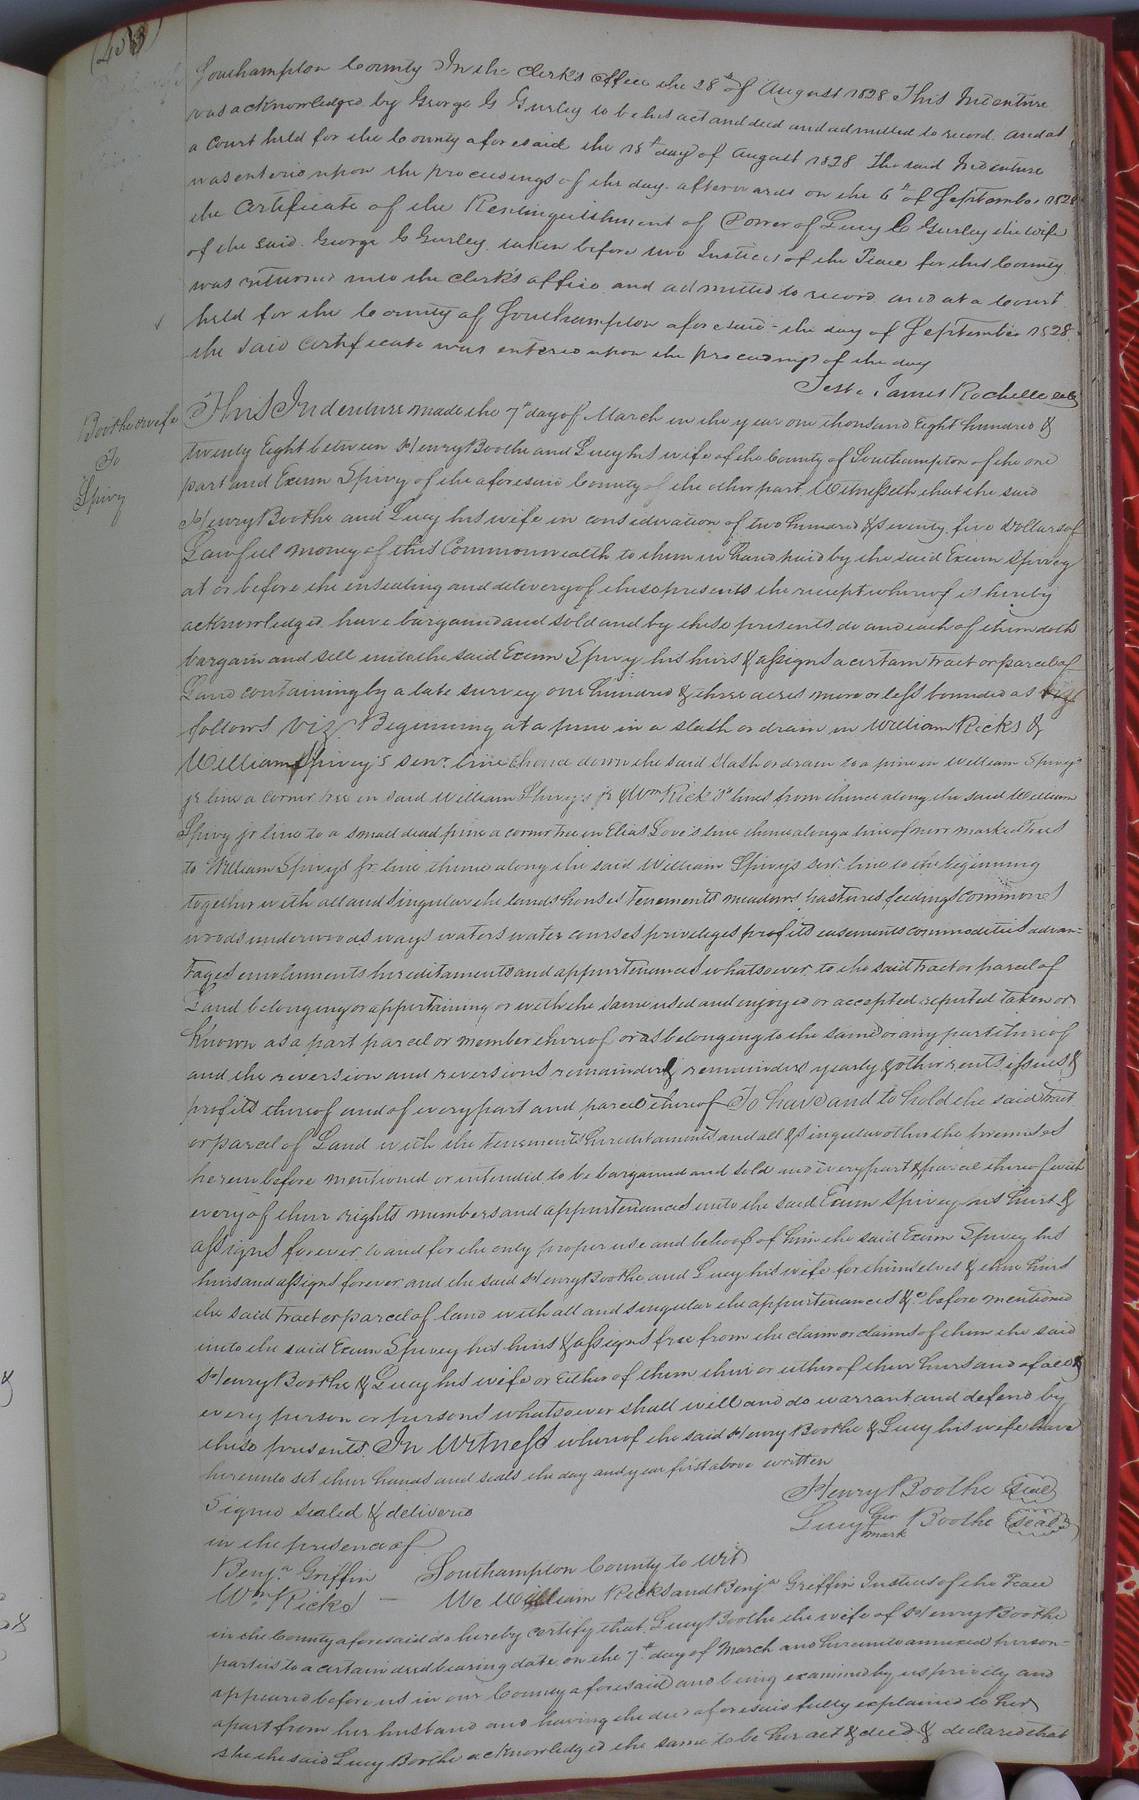 Southampton County In the Clerk's office the 28th of August 1828 This Indenture
was acknowledged by George G Gurley to be his act and deed and admitted to record and at
a Court held for the County aforesaid the 18th day of August 1828 The said Indenture
was enterd upon the proceedings of the day. afterwards on the 6th of September 1828
the Certificate of the Relinquishment of Dower of Lucy C Gurley the wife
of the said George G Gurley taken before two Justices of the Peace for this County
was returned into the clerk's office and admitted to record and at a Court
held for the County of Southampton aforesaid - the day of September 1828.
the said certificate was entered upon the proceedings of the day
Teste James Rochelle
Boothe & wife
To
Spivy
This Indenture made the 7th day of March in the year one thousand Eight hundred &
twenty Eight between Henry Boothe and Lucy his wife of the County of Southampton of the one
part and Exum Spivy of the aforesaid County of the other part Witnesseth that the said
Henry Boothe and Lucy his wife in consideration of two hundred & seventy five Dollars of
Lawful money of this Commonwealth to them in hand paid by the said Exum Spivey
at or before the ensealing and delivery of these presents the receipt whereof is hereby
acknowledged have bargained and sold and by these presents do and each of them doth
bargain and sell unto the said Exum Spivy his heirs & assigns a certain tract or parcel of
Land containing by a late survey one hundred & three acres more or less bounded as
follows Viz Beginning at a pine in a slash or drain in William Ricks &
William Spivey's senr. line thence down the said slash or drain to a pine in William Spivey's
jr line a corner tree in said William Spivey's jr & Wm Rick's lines from thence along the said William
Spivy jr line to a small dead pine a corner tree in Elias Love's line thence along a line of new marked trees
to William Spivey's senr. line thence along the said William Spivey's senr. line to the beginning
together with all and singular the lands houses tenements meadows pastures feedings commons
woods underwoods ways waters water courses priveleges profits easements commodities advan=
tages emoluments hereditaments and appurtenances whatsoever to the said tract or parcel of
Land belonging or appertaining or with the same used and enjoyed or accepted reputed taken or
known as a part parcel or member thereof or as belonging to the same or any part thereof
and the reversion and reversions remainder & remainders yearly & other rents issues &
profits thereof and of every part and parcel thereof To have and to hold the said tract
or parcel of Land with the tenements hereditaments and all & singular other the premises
herein before mentioned or intended to be bargained and sold and every part & parcel thereof with
every of their rights members and appurtenances unto the said Exum Spivey his heirs &
assigns forever to and for the only proper use and behoof of him the said Exum Spivey his
heirs and assigns forever and the said Henry Boothe and Lucy his wife for themselves & their heirs
the said tract or parcel of land with all and singular the appurtenances &c before mentioned
unto the said Exum Spivey his heirs & assigns free from the claim or claims of them the said
Henry Boothe & Lucy his wife or Either of them their or either of their heirs and of all &
every person or persons whatsoever shall will and do warrant and defend by
these presents. In Witness whereof the said Henry Boothe & Lucy his wife have
hereunto set their hands and seals the day and year first above written
Henry Boothe seal
Lucy her mark Boothe seal
Signed sealed & delivered
in the presence of
Benja. Griffin
Wm Ricks
Southampton County to Wit
We William Ricks and Benja Griffin Justices of the Peace
in the County aforesaid do hereby certify that Lucy Boothe the wife of Henry Boothe
parties to a certain deed bearing date on the 7th day of March and hereunto annexed person=
appeared before us in our County aforesaid and being examined by us privily and
apart from her husband and having the deed aforesaid fully explained to her
she the said Lucy Boothe acknowledged the same to be her act & deed & declared that